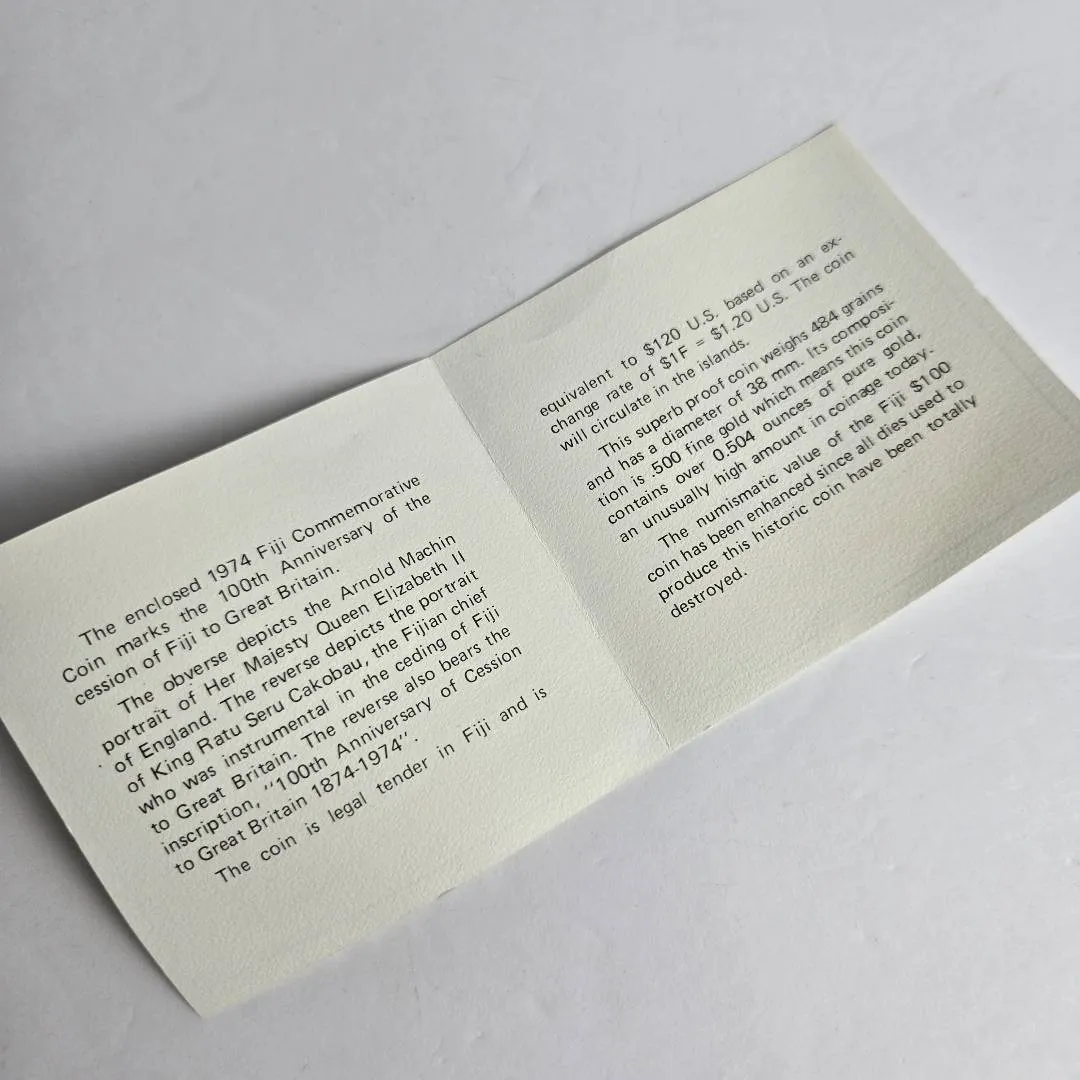 The enclosed 1974 Fiji Commemorative
Coin marks the 100th Anniversary of the
cession of Fiji to Great Britain.
The obverse depicts the Arnold Machin
portrait of Her Majesty Queen Elizabeth II
of England. The reverse depicts the portrait
of King Ratu Seru Cakobau, the Fijian chief
who was instrumental in the ceding of Fiji
to Great Britain. The reverse also bears the
inscription, "100th Anniversary of Cession
to Great Britain 1874-1974".
The coin is legal tender in Fiji and is
equivalent to $120 U.S. based on an ex-
change rate of $1F = $1.20 U.S. The coin
will circulate in the islands.
This superb proof coin weighs 484 grains
and has a diameter of 38 mm. Its composi-
tion is .500 fine gold which means this coin
contains over 0.504 ounces of pure gold,
an unusually high amount in coinage today.
The numismatic value of the Fiji $100
coin has been enhanced since all dies used to
produce this historic coin have been totally
destroyed.